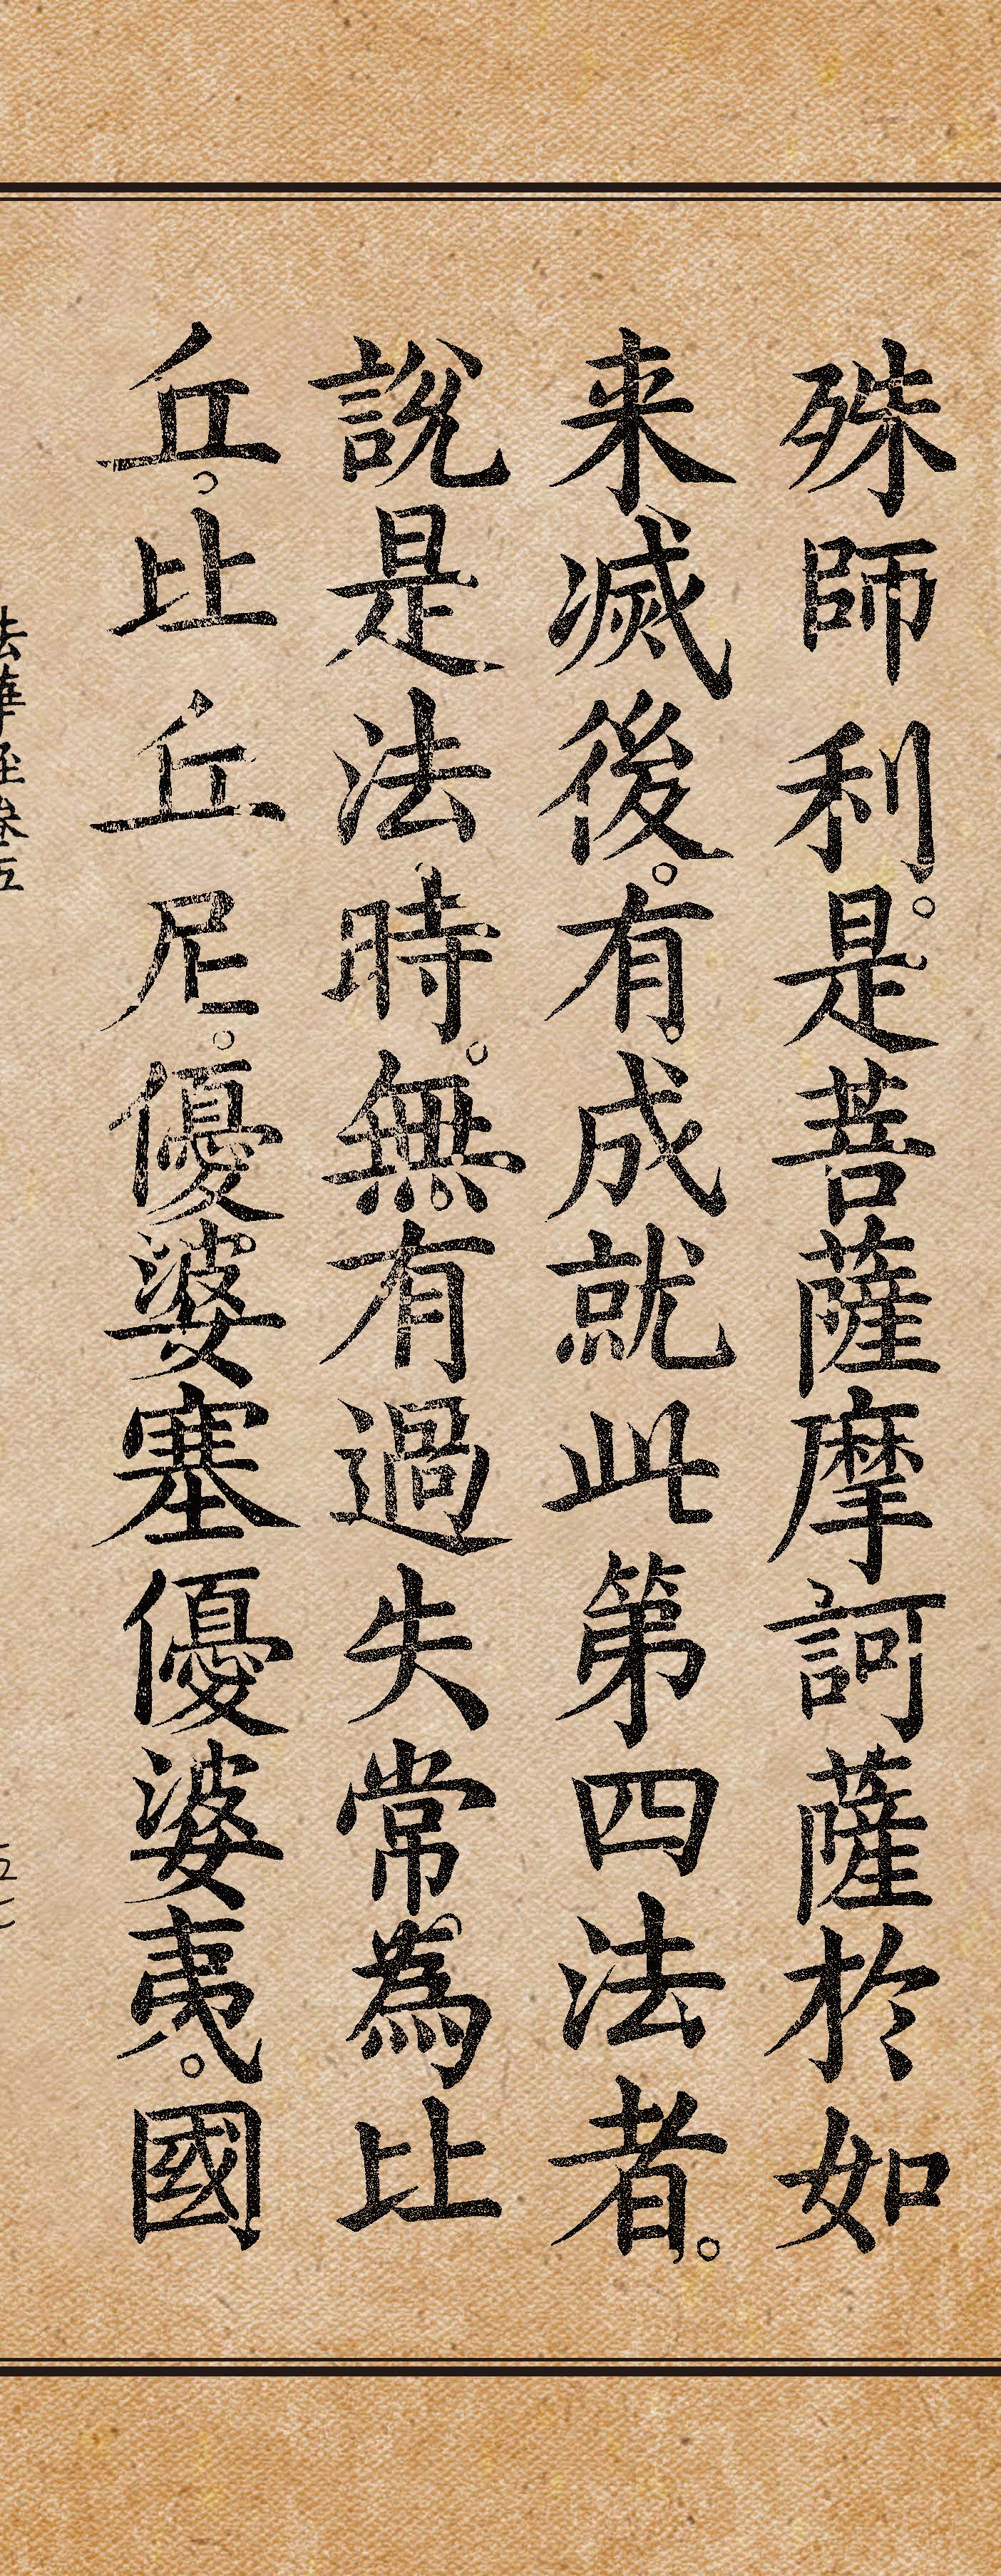 殊師利。是菩薩摩訶薩於如
来滅後。有成就此第四法者。
說是法時。無有過失常為比
丘。比丘尼。優婆塞優婆夷。國
法華経巻五